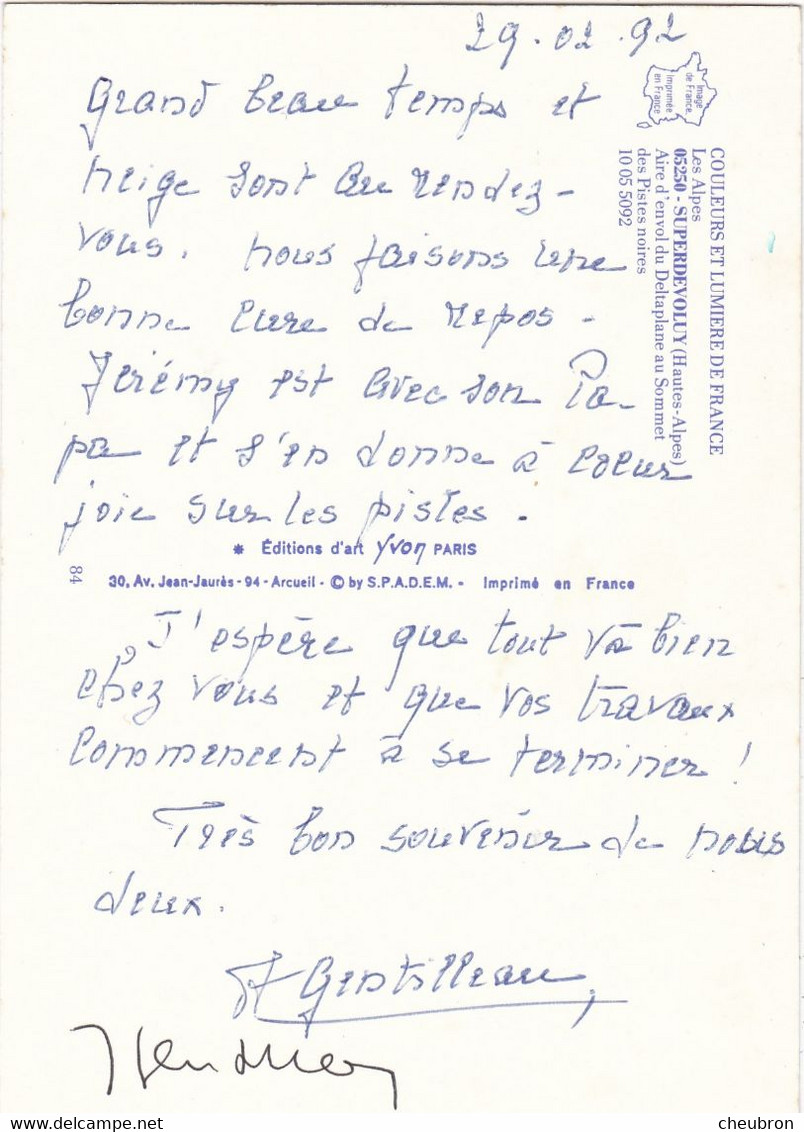 29.02.92
Grand beau temps et
neige sont au rendez-
vous. nous faisons une
bonne cure de repos.
Jérémy est avec son Pa-
pa et s'en donne à coeur
joie sur les pistes.
Image
de France.
Imprimée
en France
COULEURS ET LUMIERE DE FRANCE
Les Alpes
05250 - SUPERDEVOLUY (Hautes-Alpes)
Aire d'envol du Deltaplane au Sommet
des Pistes noires
10 05 5092
* Éditions d'art yvon PARIS
84
30, Av. Jean-Jaurès - 94 - Arcueil - © by S.P.A.D.E.M. - Imprimé en France
J'espère que tout và bien
chez vous et que vos travaux
commencent à se terminer !
Très bon souvenir de nous
deux.
Gentilleau
cheubron.com